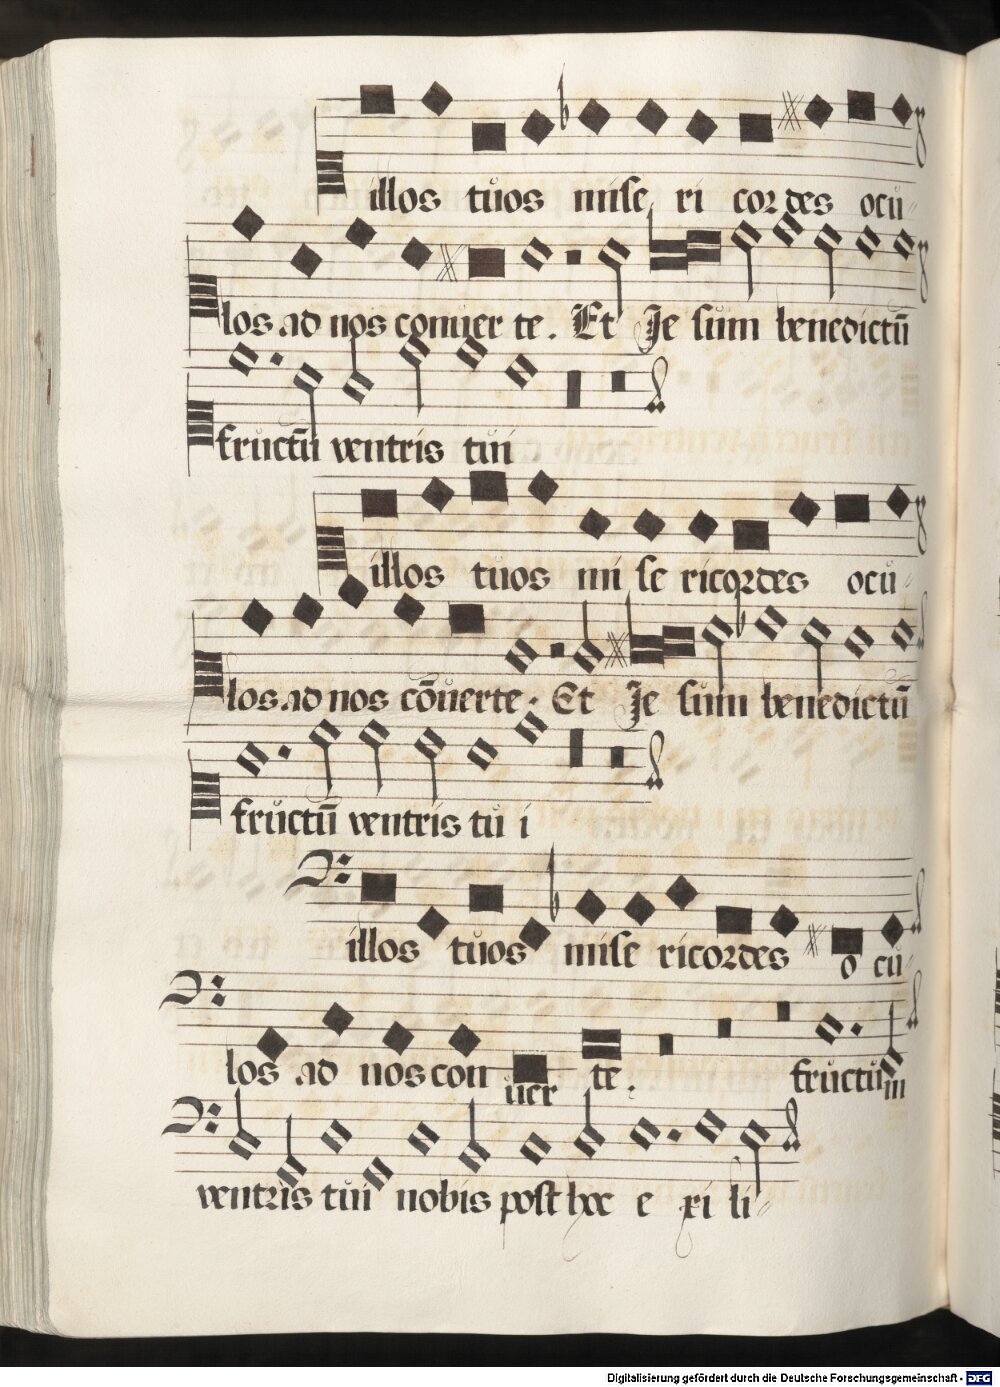 illos tuos mise ri cordes ocu-
los ad nos conuer te. Et Je sum benedictū
fructū ventris tui
illos tuos mi se ricordes ocu-
los ad nos cōuerte. Et Je sum benedictū
fructū ventris tu i
illos tuos mise ricordes o cu-
los ad nos con uer te. fructum
ventris tui nobis post hoc e xi li-
Digitalisierung gefördert durch die Deutsche Forschungsgemeinschaft - DFG